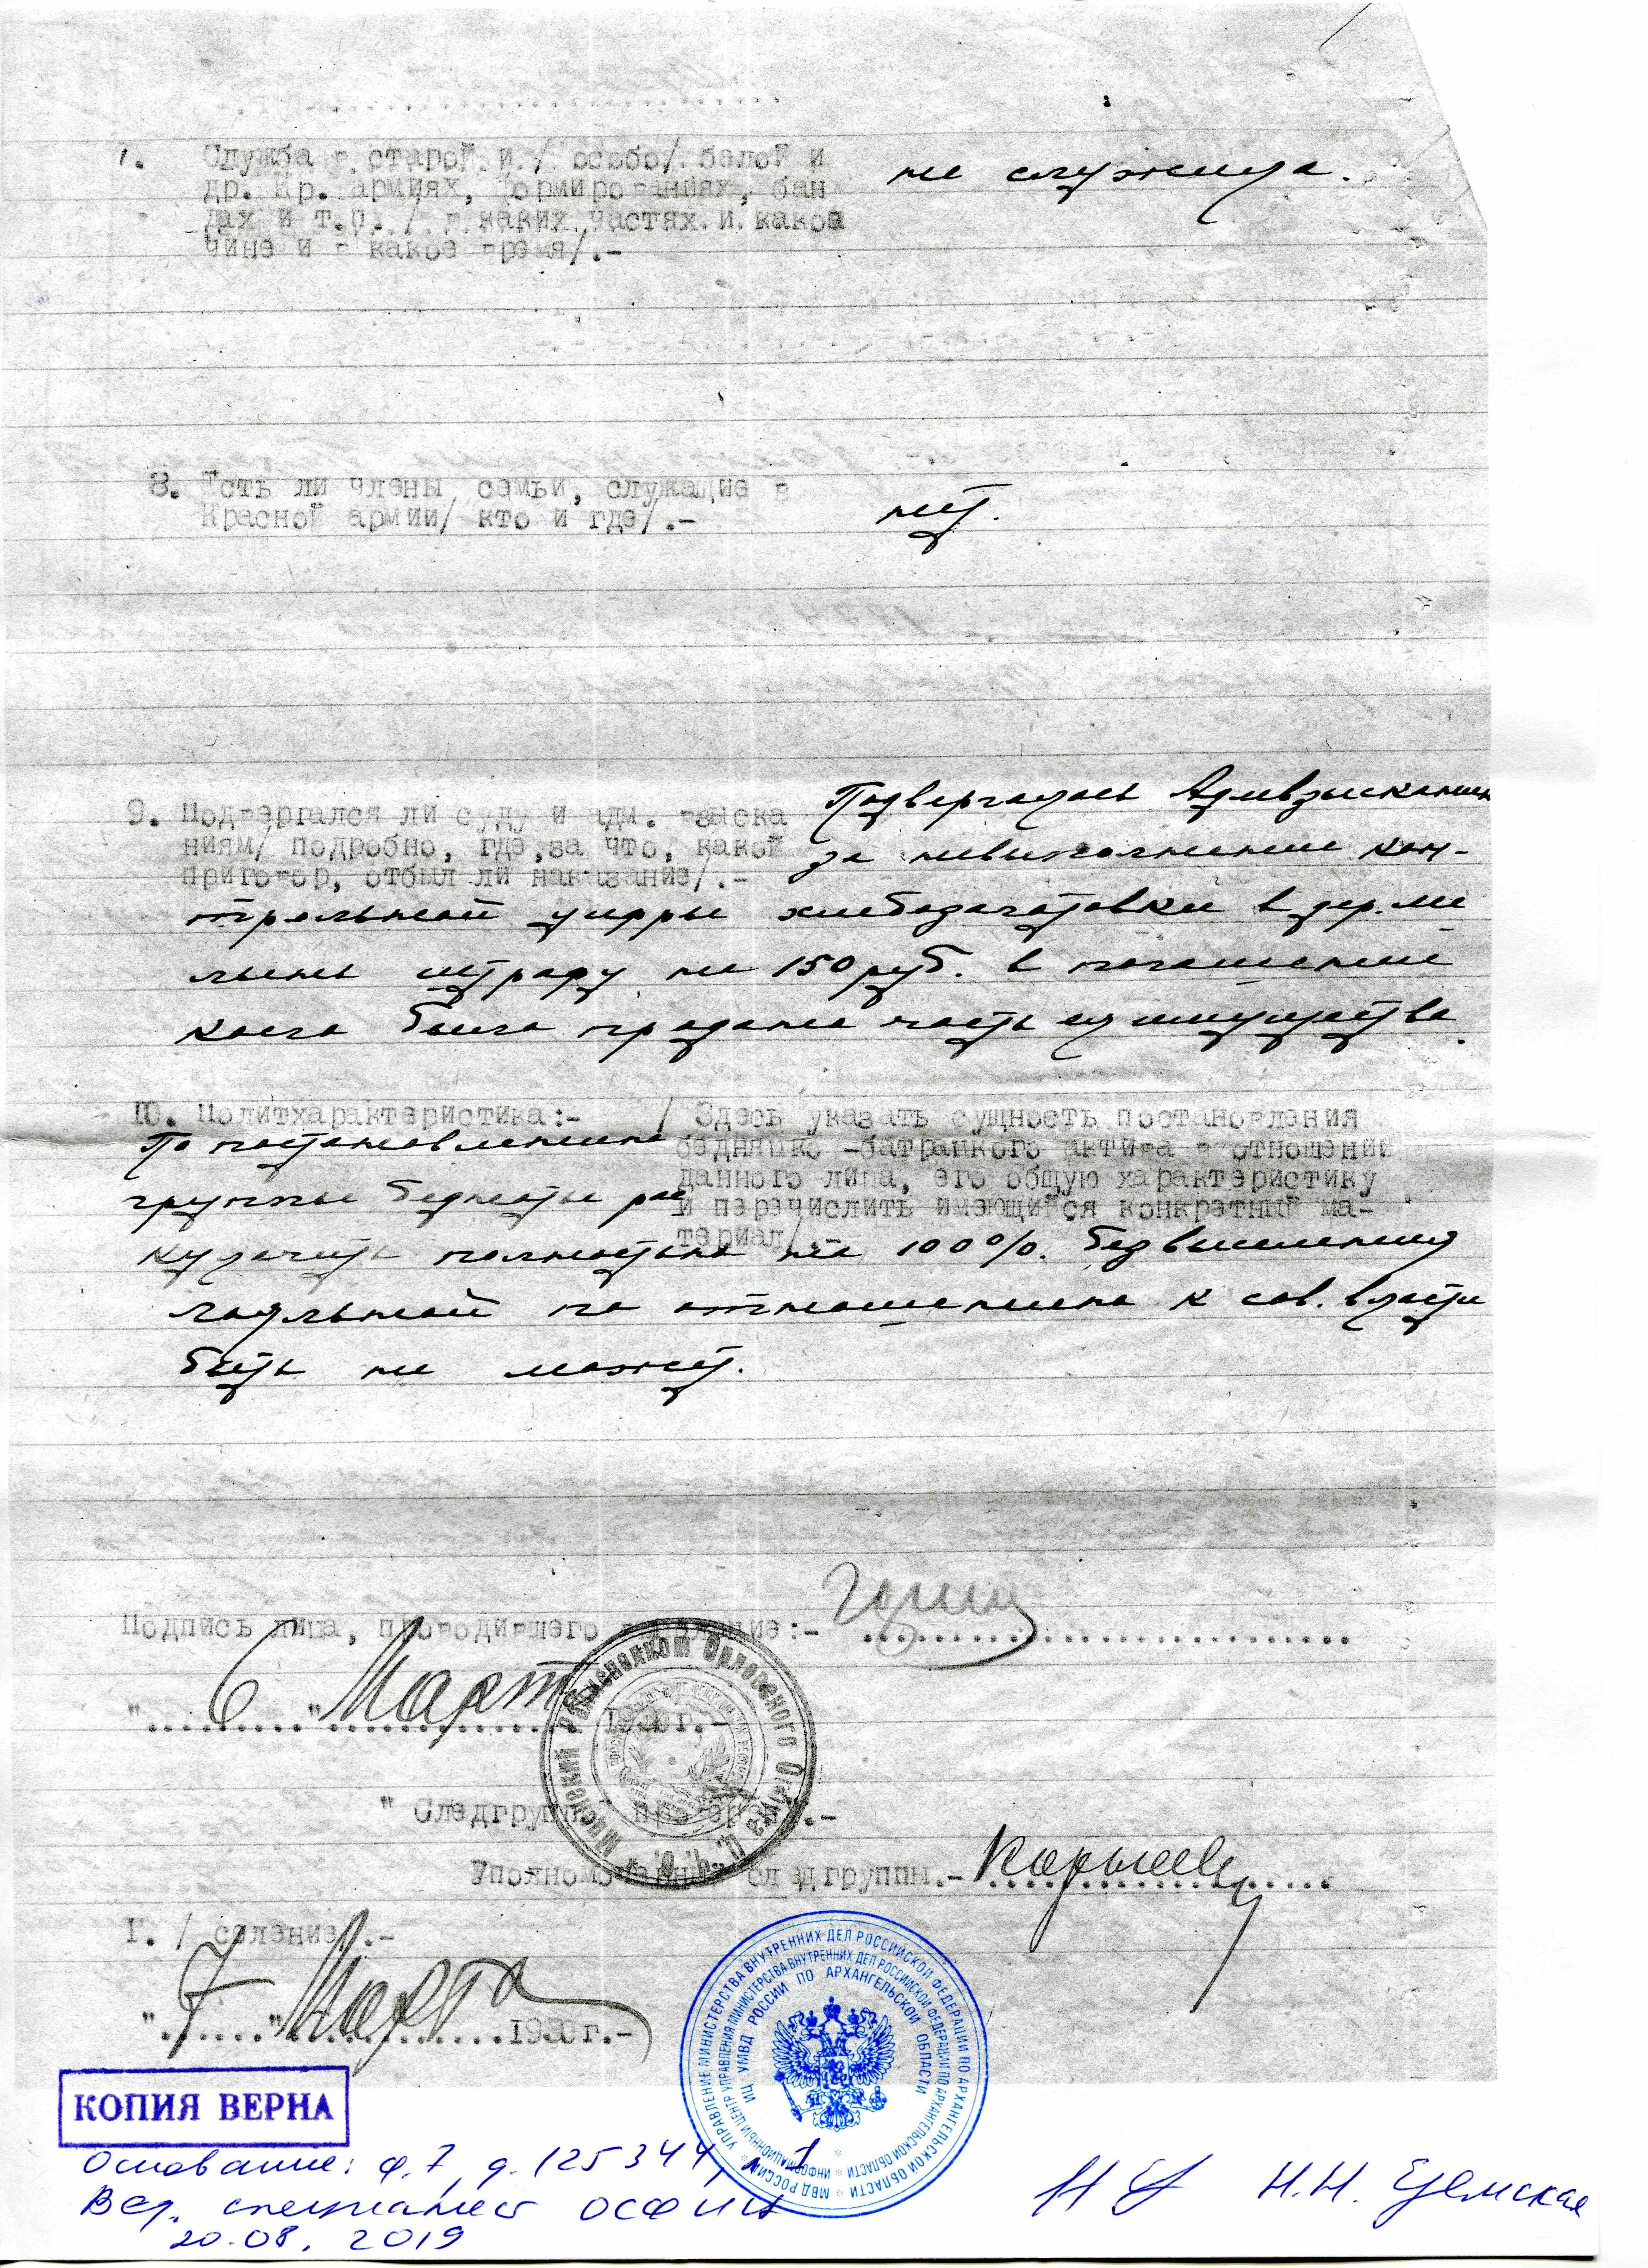 Служба в старой и / особо/ белой и
др. кр. армиях, формированиях, бан
дах и т.п. / в каких частях и какои
чине и в какое время/.-
не служила.
8. Есть ли члены семьи, служащие в
красной армии/ кто и где/.-
нет.
9. Подвергался ли суду и адм. взыска
ниям/ подробно, где, за что, какой
приговор, отбыл ли наказание/.-
Подвергалась Админвзысканию
за невыполнение кон-
трольной цифры хлебозаготовки в
штрафу на 150 руб. в погашение
коего была продана часть имущества.
10. Политхарактеристика:- / Здесь указать сущность постановления
бедняцко -батрацкого актива в отношении
данного лица, его общую характеристику
и перечислить имеющийся конкретный ма-
териал/.-
По постановлению
группы бедноты рас
кулачить полностью на 100%. без выселения
лояльной по отношению к сов. власти
быть не может.
Подпись лица, проводившего дознание:-
"6" Март 1930 г.-
Мценский Райисполком Орловского Округа Ц.Ч.О.
" Следгруппой проверен".-
Уполномоченный следгруппы.-
Г. / селение/.-
"7" Марта 1930г.-
КОПИЯ ВЕРНА
УПРАВЛЕНИЕ МИНИСТЕРСТВА ВНУТРЕННИХ ДЕЛ РОССИЙСКОЙ ФЕДЕРАЦИИ ПО АРХАНГЕЛЬСКОЙ ОБЛАСТИ * МВД РОССИИ *
ИНФОРМАЦИОННЫЙ ЦЕНТР УПРАВЛЕНИЯ МИНИСТЕРСТВА ВНУТРЕННИХ ДЕЛ РОССИЙСКОЙ ФЕДЕРАЦИИ ПО АРХАНГЕЛЬСКОЙ ОБЛАСТИ
ИЦ УМВД РОССИИ ПО АРХАНГЕЛЬСКОЙ ОБЛАСТИ
Основание: ф.7, д. 125344
Вед. специалист ОСФ ИЦ
Н.Н.
20.08.2019